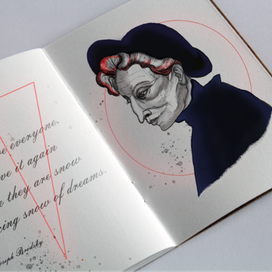 everyone,
it again
they are snow
snow of dreams.
Brodsky